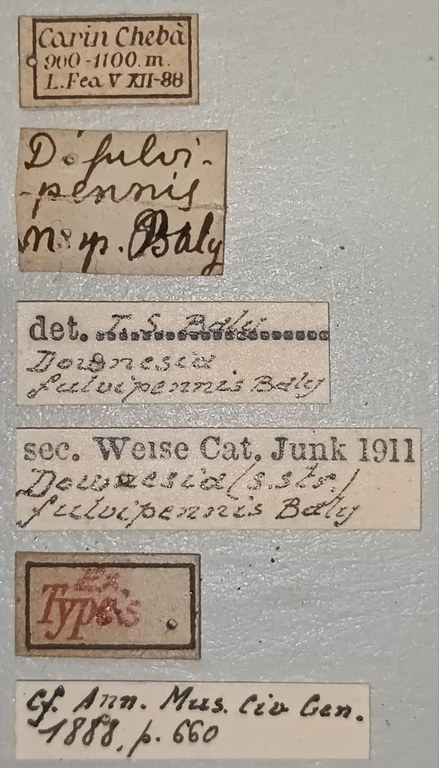 Carin Chebà
900-1100. m.
L. Fea V XII-88
D. fulvi-
-pennis
n. sp. Baly
det. J. S. Baly
Downesia
fulvipennis Baly
sec. Weise Cat. Junk 1911
Downesia (s. str.)
fulvipennis Baly
Ex.
Typis
cf. Ann. Mus. Civ Gen.
1888, p. 660